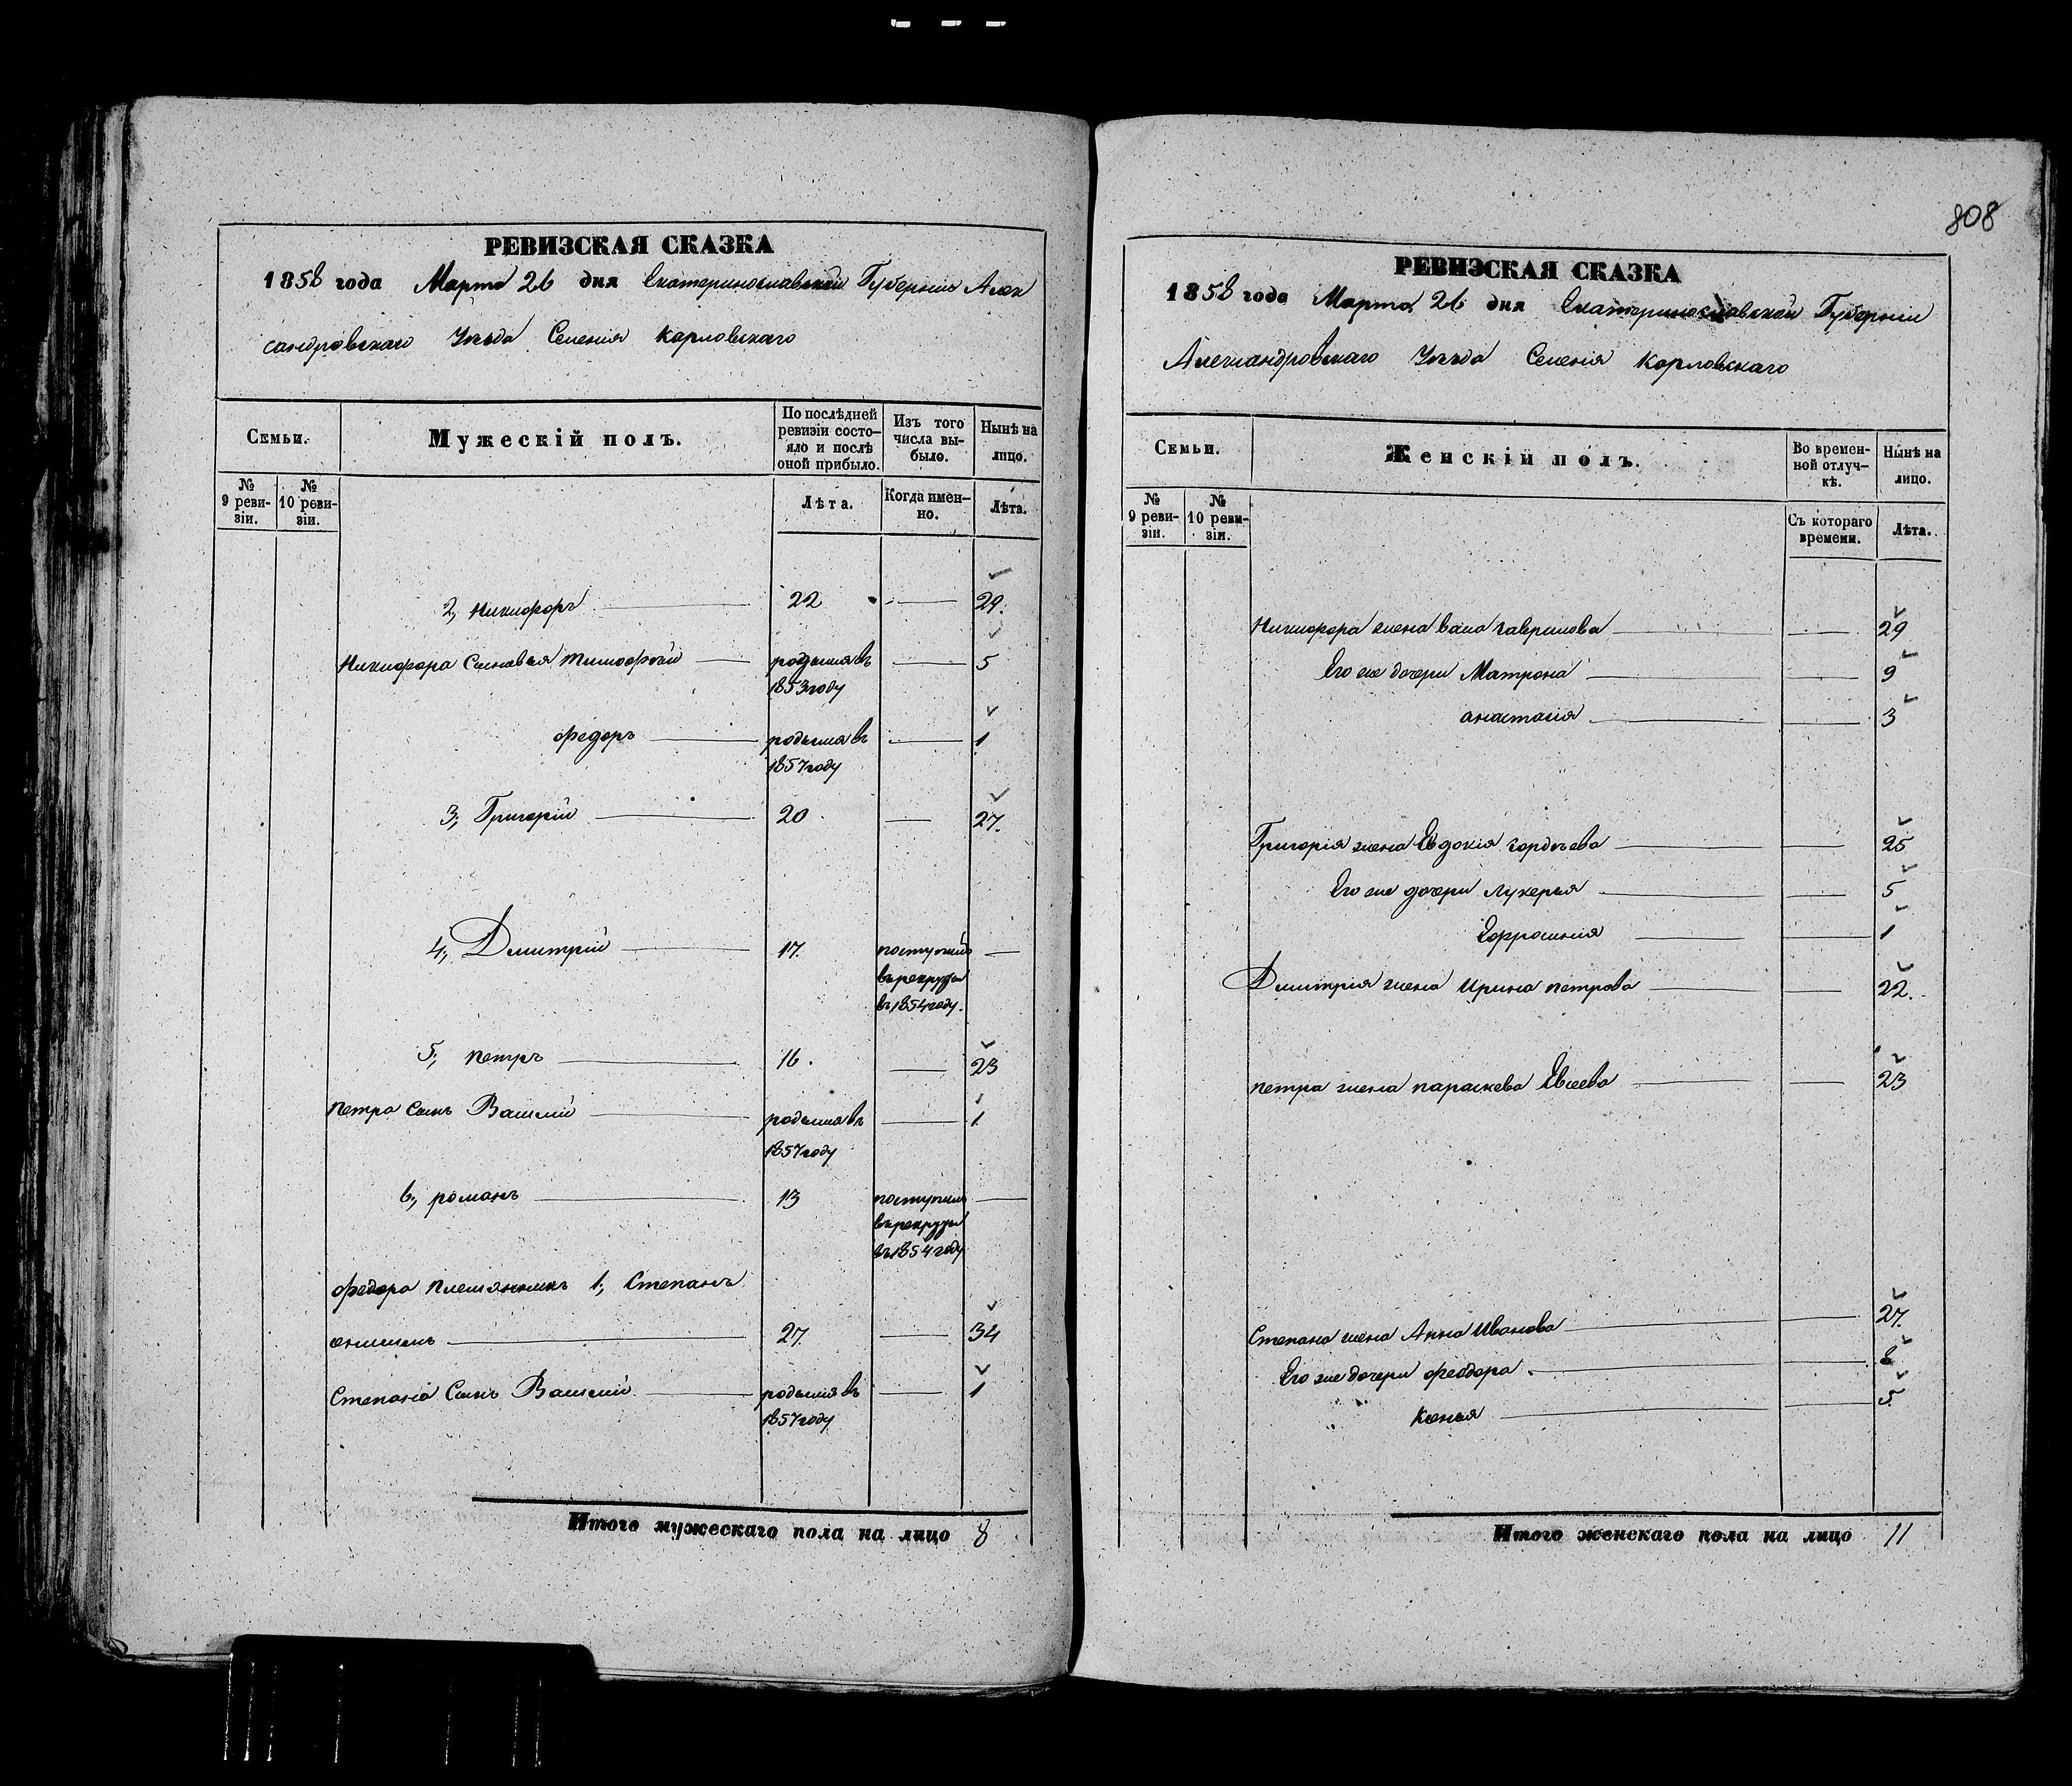 РЕВИЗСКАЯ СКАЗКА
1858 года Марта 26 дня Екатеринославской Губерніи Алек
сандровскаго Уѣзда Селенія Карловскаго
Семьи.
Мужескій полъ.
По послѣдней ревизіи состояло и послѣ оной прибыло.
Изъ того числа выбыло.
Нынѣ на лицо.
№ 9 ревизіи.
№ 10 ревизіи.
Лѣта.
Когда именно.
Лѣта.
2, Никифоръ 22 29.
Никифора Сыновья Тимофѣй родился въ 5
1853 году
Федоръ родился въ 1
1857 году
3, Григорій 20 27.
4, Дмитрій 17. поступилъ
въ рекруты
въ 1854 году.
5, петръ 16. 23
петра Сынъ Василій родился въ 1.
1857 году
6, романъ 13 поступилъ
въ рекруты
въ 1854 году
Федора племянникъ 1, Степанъ
27. 34
Степана Сынъ Василій родился въ 1
1857 году
Итого мужескаго пола на лицо 8
808
РЕВИЗСКАЯ СКАЗКА
1858 года Марта 26 дня Екатеринославской Губерніи
Александровскаго Уѣзда Селенія Карловскаго
Семьи.
Женскій полъ.
Во временной отлучкѣ.
Нынѣ на лицо.
№ 9 ревизіи.
№ 10 ревизіи.
Съ котораго времени.
Лѣта.
Никифора жена гаврилова 29
Его же дочери Матрона 9
анастасія 3
Григорія жена Евдокія гордѣева 25
Его же дочери лукерья 5
Ефросинія 1
Дмитрія жена Ирина петрова 22.
петра жена параскева Евсеева 23
Степана жена Анна Иванова 27.
Его же дочери феодора
5
Итого женскаго пола на лицо 11